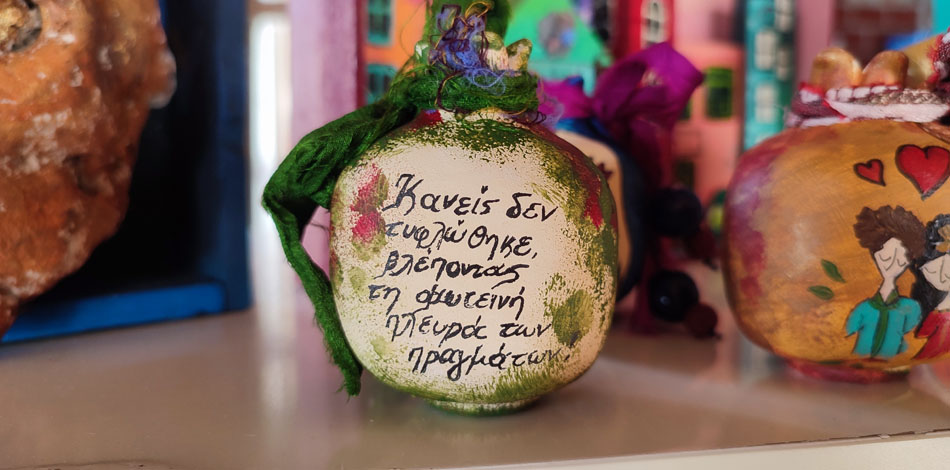 Κανείς δεν
τυφλώθηκε,
βλέποντας
τη φωτεινή
πλευρά των
πραγμάτων.